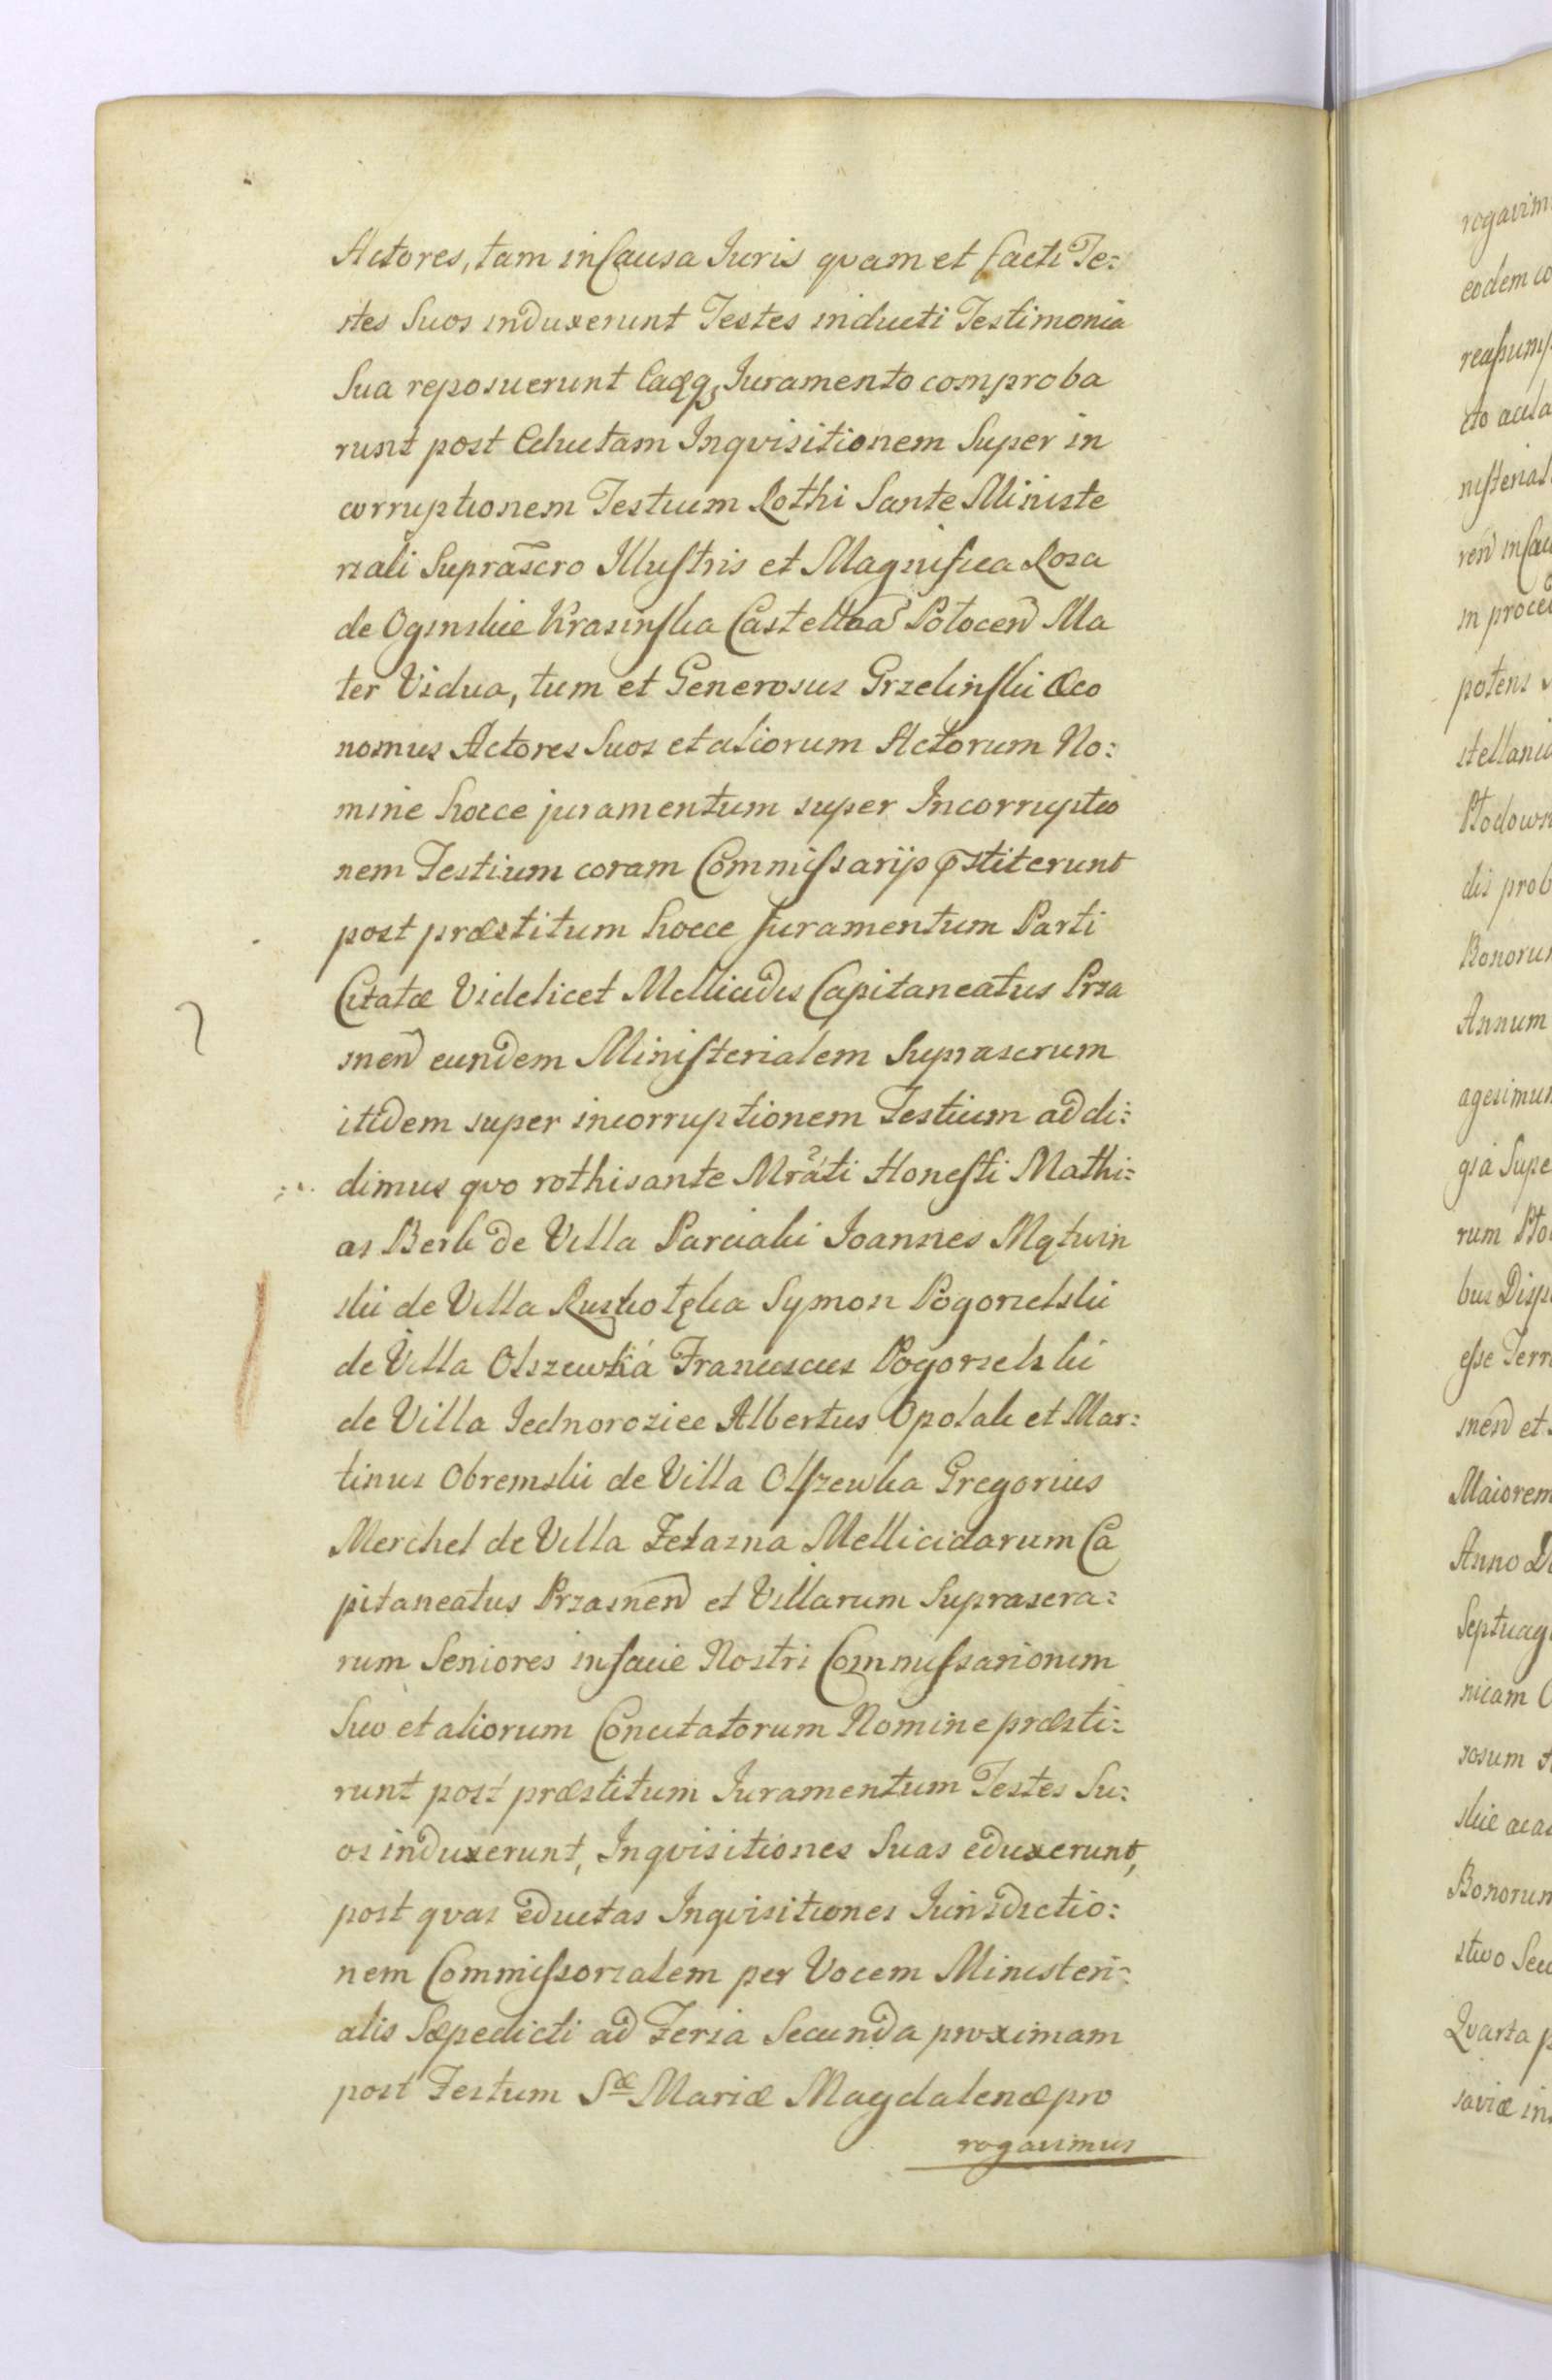 Actores, tam in Causa Iuris qvam et facti Te:
stes Suos induxerunt Testes inducti Testimonia
Sua reposuerunt Eaqq Iuramento comproba
runt post Eductam Inqvisitionem Super in
corruptionem Testium Rothi Sante Ministe
riali Suprascro Illustris et Magnifica Roza
de Oginskie Krasinska Castellaa Polocen Ma
ter Vidua, tum et Generosus Grzelinski Œco
nomus Actores Suos et aliorum Actorum No:
mine hocce juramentum super Incorruptio
nem Testium coram Commissarijs pstiterunt
post præstitum hocce Juramentum Parti
Citatæ Videlicet Mellicidis Capitaneatus Prza
snen eundem Ministerialem Suprascrum
itidem super incorruptionem Testium addi:
dimus qvo rothisante Mrati Honesti Mathi:
as Berk de Villa Parciaki Joannes Mątwin
ski de Villa Ruskołęka Symon Pogorzelski
de Villa Olszewka Franciscus Pogorzelski
de Villa Jednorozice Albertus Opolak et Mar:
tinus Obremski de Villa Olszewka Gregorius
Merchel de Villa Zelazna Mellicidarum Ca
pitaneatus Przasnen et Villarum Suprascra:
rum Seniores in facie Nostri Commissarionum
Suo et aliorum Concitatorum Nomine præsti:
runt post præstitum Iuramentum Testes Su:
os induxerunt, Inqvisitiones Suas eduxerunt,
post qvas eductas Inqvisitiones Iurisdictio:
nem Commissorialem per Vocem Ministeri:
alis Sæpedicti ad Feria Secunda proximam
post Festum Sæ Mariæ Magdalenæ pro
rogavimus
rogavim
eodem co
reassump
cto acela
nisterial
ren in Cau
in proce
potens
stellani
Plodown
dis prob
Bonorum
Annum
agesimum
gia Supe
rum Plo
bus Disp
esse Terr
snen et
Maiorem
Anno D
Septuag
nicam
rosum
skie aca
Bonorum
stwo Sec
Qvarta p
saviæ in